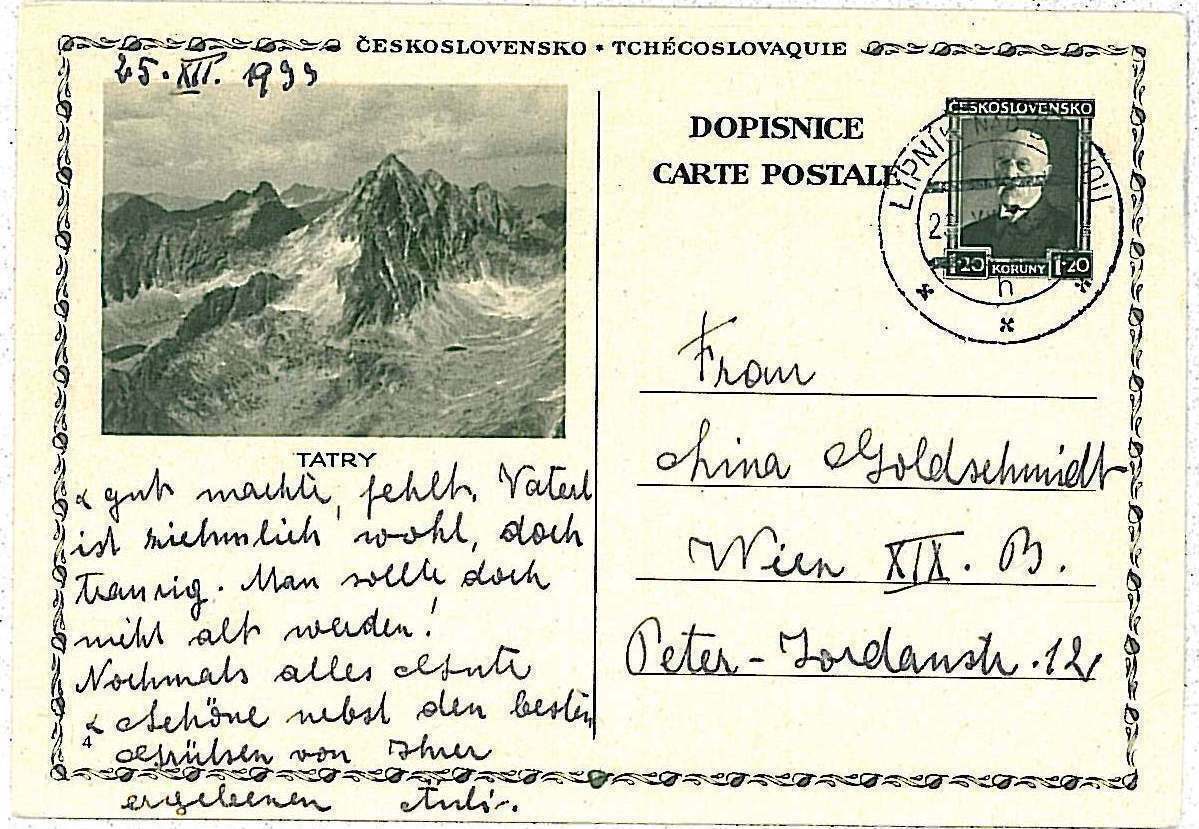 ČESKOSLOVENSKO * TCHÉCOSLOVAQUIE
25. XII. 1933
DOPISNICE
CARTE POSTALE
ČESKOSLOVENSKO
1·20 KORUNY 1·20
LIPNÍK NAD
h
TATRY
& gut machte, fehlt. Vaterl
ist ziehmlich wohl, doch
traurig. Man sollte doch
nicht alt werden!
Nochmals alles Gute
& Schöne nebst den besten
Grüßen von Ihrer
ergebenen
4
Frau
Lina Goldschmidt
Wien XIX. B.
Peter-Jordanstr. 12